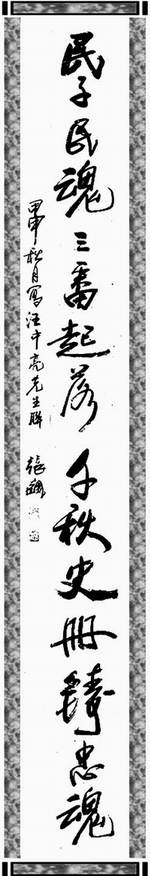 民子民魂三番起落千秩史册铸忠魂
甲申秋月写汪中亮先生联
张